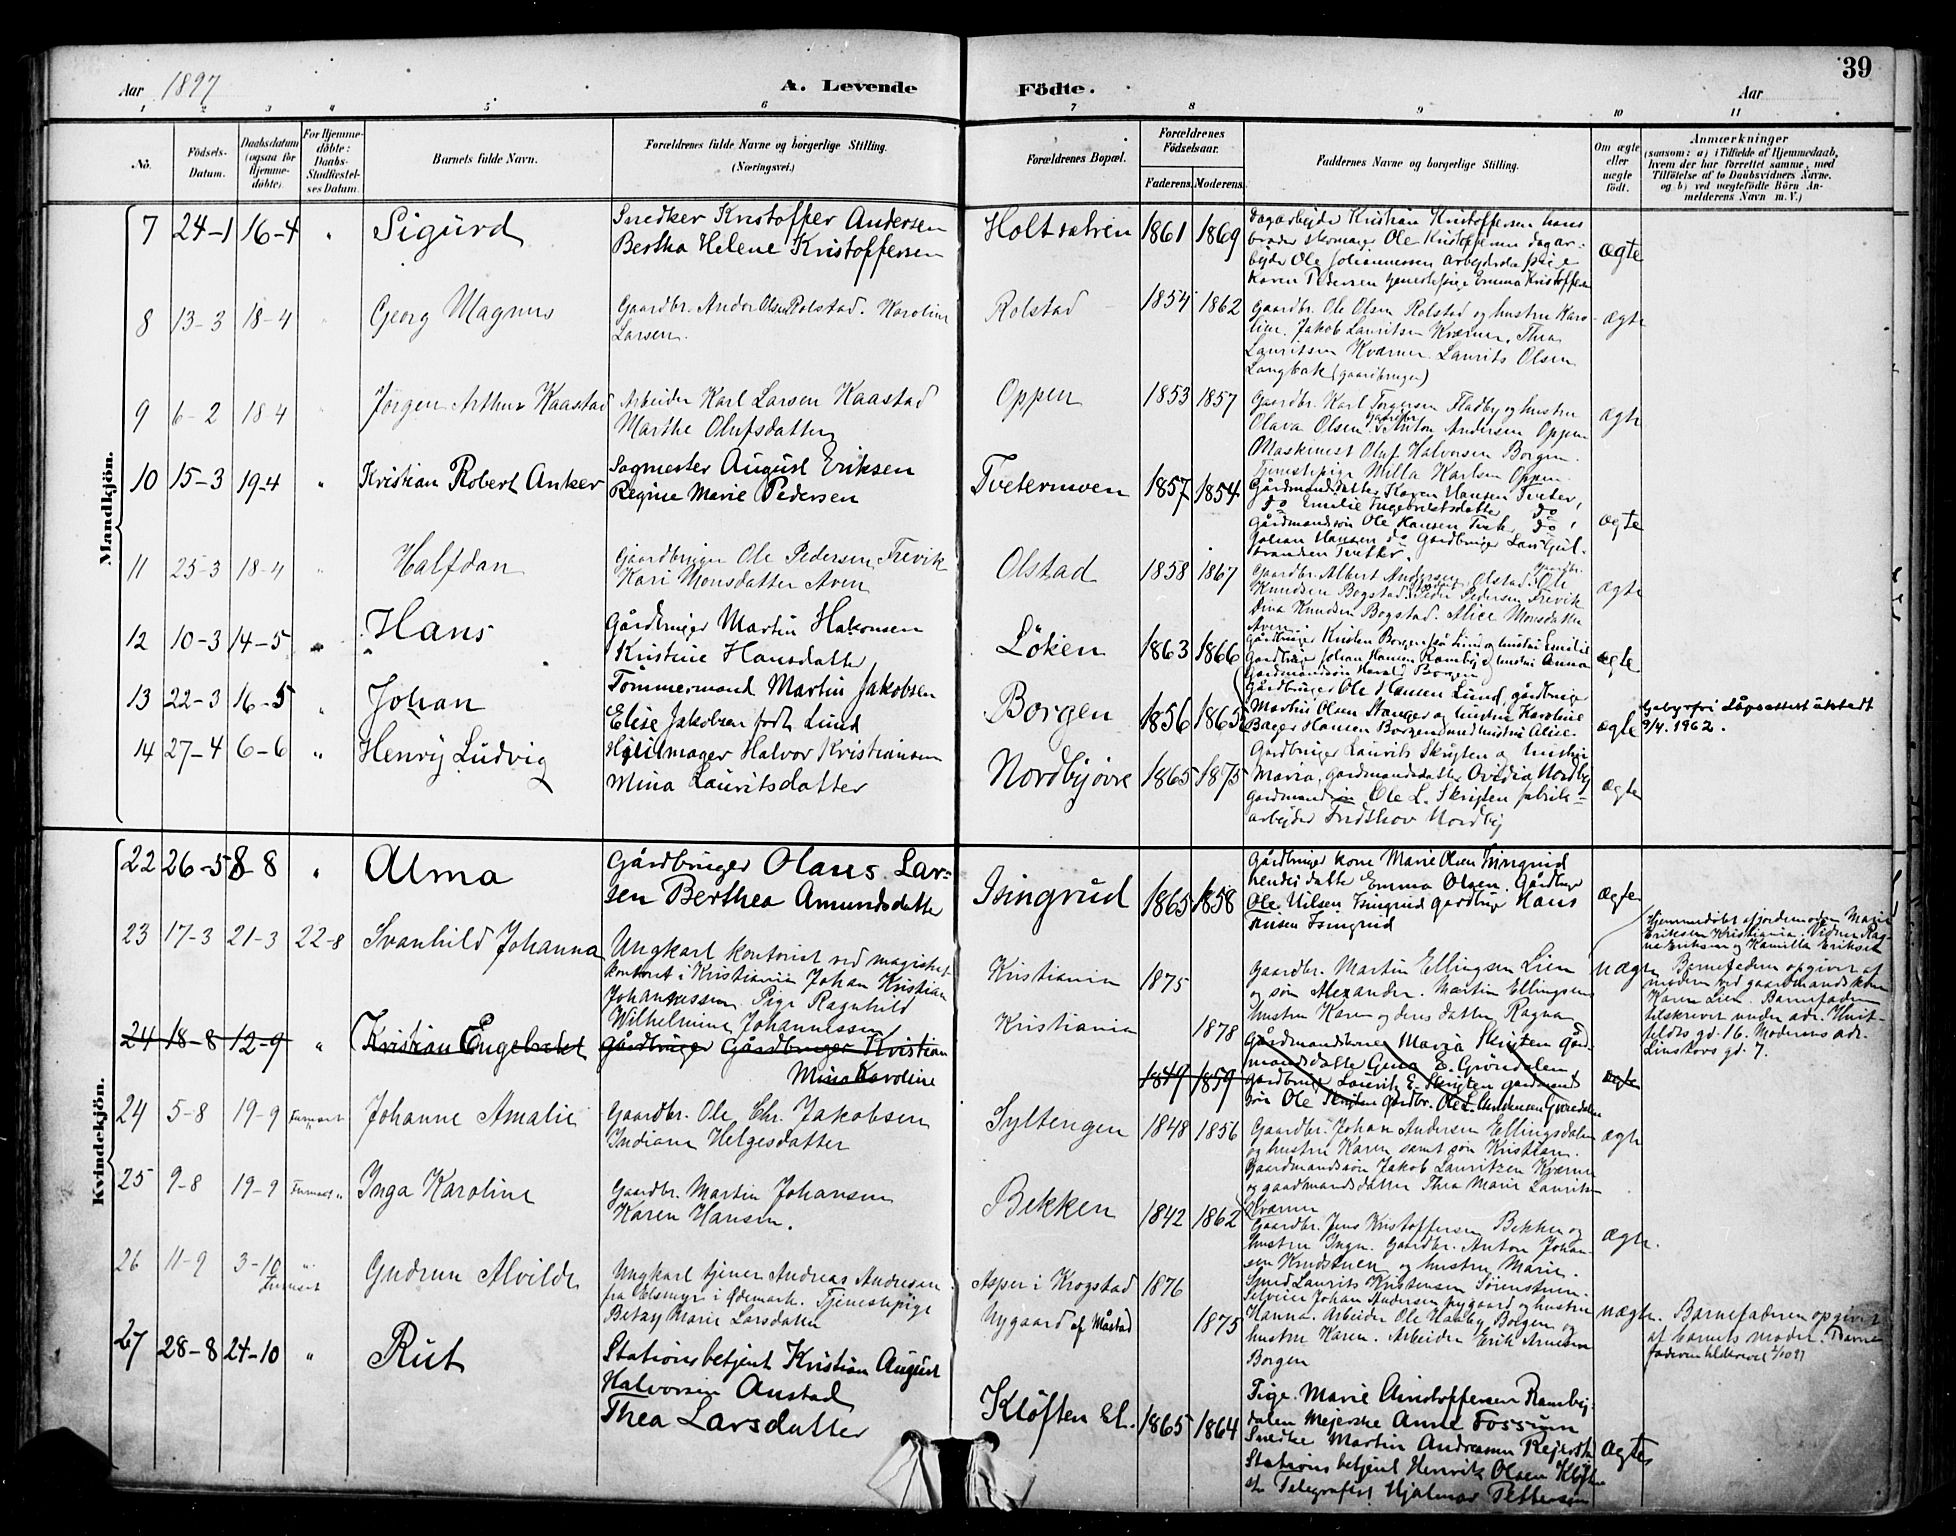 39
Aar 1897
A. Levende Födte.
Aar
1 2 3 4 5 6 7 8 9 10 11
No.
Födsels-Datum.
Daabsdatum (ogsaa for Hjemme-döbte).
For Hjemme-döbte: Daabs-Stadfæstel-ses Datum.
Barnets fulde Navn.
Forældrenes fulde Navne og borgerlige Stilling.
(Næringsvei.)
Forældrenes Bopæl.
Forældrenes Födselsaar.
Faderens. Moderens.
Faddernes Navne og borgerlige Stilling.
Om ægte eller uægte födt.
Anmærkninger
(saasom: a) i Tilfælde af Hjemmedaab,
hvem der har forrettet samme, med
Tilföielse af to Daabsvidners Navne,
og b) ved uægtefödte Börn An-
melderens Navn m. V.)
Mandkjön.
7 24-1 16-4 " Sigurd
Snedker Kristoffer Andersen
Bertha Helene Kristoffersen
Holtsætren 1861 1869
Dagarbejder Kristian Kristoffersen hans
broder Ole Kristoffersen dagar-
bejder Ole Johannessen
Karen Pedersen tjenestepige Emma Kristoffersen
ægte
8 13-3 18-4 Georg Magnus
Gaardbr. Andor Olsen Rolstad. Karoline
Larsen.
Rolstad 1854 1862
Gaardbr. Ole Olsen Rolstad og hustru Karo-
line. Jakob Lauritsen Kværner. Thea
Lauritsen Kværner. Laurits Olsen
Langbak (gaardbruger)
ægte
9 6-2 18-4 Jørgen Arthur Kaastad
Arbeider Karl Larsen Kaastad
Marthe Olufsdatter
Oppen 1853 1857
Gaardbr. Karl Torgersen Fladby og hustru
Olava Olsen. Anton Andersen Oppen
Maskinist Oluf Halvorsen Borgen.
Tjenestepige Milla Karlsen Oppen
ægte
10 15-3 19-4 " Kristian Robert Anker
Sagmester August Eriksen
Regine Marie Pedersen
Tvetermoen 1857 1854
Gårdmandsdatter Karen Hansen Tveter,
do Emilie Engebretsdatter do,
Gårdmandssøn Ole Hansen Tveter do,
Johan Hansen do Gårdbruger Lars Gul-
brandsen Tveter.
ægte
11 25-3 18-4 Halfdan
Gaardbruger Ole Pedersen Frevik
Kari Monsdatter Aven
Olstad 1858 1867
Gaardbr. Albert Andersen Olstad. Gaardbr. Ole
Knudsen Bogstad. Peder Pedersen Frevik
Dina Knudsen Bogstad. Alice Monsdatter
Aven.
ægte
12 10-3 14-5 " Hans
Gårdbruger Martin Hakonsen
Kristine Hansdatter
Löken 1863 1866
Gårdbruger Kristen Borgen på Lund og hustru Emilie
Gårdbruger Johan Hansen Ramby og hustru Anna
Gårdmandssøn Harald Borgen
ægte
13 22-3 16-5 " Johan
Tømmermand Martin Jakobsen
Elise Jakobsen født Lund
Borgen 1856 1865
Gårdbruger Ole Hansen Lund gårdbruger
Martin Olsen Stanger og hustru Karoline
Bager Hansen Borgen med hustru Alice.
ægte
Gebyrfri Dåpsattest utstedt
9/4. 1962.
14 27-4 6-6 " Henrij Ludvig
Hjulmager Halvor Kristiansen
Mina Lauritsdatter
Nordbyøvre 1865 1875
Gårdbruger Laurits Skrijten og hustru
Maria, gårdmandsdatter Ovidia Nordby
gårdmandssøn Ole L. Skrijten fabrik-
arbejder Fridthov Nordby
ægte
Kvindekjön.
22 26-5 8-8 " Alma
Gårdbruger Olaus Lar-
sen Berthea Amundsdatter
Isingrud 1865 1858
Gårdbruger kone Marie Olsen Isingrud
hendes datter Emma Olsen. Gårdbruger
Ole Nilsen Isingrud gårdbruger Hans
Nilsen Isingrud
ægte
23 17-3 21-3 22-8 Svanhild Johanna
Ungkarl kontorist ved magistrat-
kontoret i Kristiania Johan Kristian
Johannessen. Pige Ragnhild
Wilhelmine Johannessen
Kristiania 1875
Kristiania 1878
Gaardbr. Martin Ellingsen Lien
og søn Alexander. Martin Ellingsens
hustru Karen og deres datter Ragna
uægte
Hjemmedøbt af jordemoderen Marie
Eriksen Kristiania. Vidner Rag-
na Eriksen og Kamilla Eriksen
Barnefaderen opgivet af
moderen ved gaardmandskone
Karen Lien. Barnefaderen
tilskrevet under adr. Huit-
feldts gd. 16. Moderens adr.
Linstows gd. 7.
24 18-8 12-9 " Kristian Engebret
Gårdbruger Gårdbruger Kristian
Mina Karoline
1849 1859
Gårdmandskone Maria Skrijten Gård-
mandsdatter Gina E. Grøndalen
gårdbruger Laurits E. Skrijten gårdmand
søn Ole Skrijten gårdbr. Ole L. Grøndalen
ægte
24 5-8 19-9 Furuset Johanne Amalie
Gaardbr. Ole Chr. Jakobsen
Indiana Helgesdatter
Syltengen 1848 1856
Gaardbr. Johan Andersen Ellingsdalen
og hustru Karen samt søn Kristian.
Gaardmandssøn Jakob Lauritzen Kværner
og gaardmandsdatter Thea Marie Lauritsen
Kværner
ægte
25 9-8 19-9 Furuset Inga Karoline
Gaardbr. Martin Johansen
Karen Hansen.
Bekken 1842 1862
Gaardbr. Jens Kristoffersen Bekken og
hustru Inga. Gaardbr. Anton Johan-
sen Knudstuen og hustru Marie.
Smed Laurits Kristensen Sörenstuen.
ægte.
26 11-9 3-10 Furuset Gudrun Alvilde
Ungkarl tjener Andreas Andresen
fra Elsmyr i Ødemark. Tjenestepige
Betzy Marie Larsdatter
Asper i Krogstad 1876
Nygaard af Måstad 1875
Selveier Johan Andersen nygaard og hustru
Hanna. Arbeider Ole Haaby Borgen og
hustru Karen. Arbeider Erik Arnesen
Borgen
uægte.
Barnefaderen opgivet
af barnets moder. Barne-
faderen tilskrevet 1/10 97
27 28-8 24-10 " Rut
Stationsbetjent Kristian August
Halvorsen Anstad
Thea Larsdatter
Kløften St. 1865 1864
Pige Marie Kristoffersen Ramby-
dalen Mejerske Anne Fossum
Snedker Martin Andreassen
Stationsbetjent Henrik Olsen Kløften
st. Telegrafist Hjalmar Pettersen
ægte